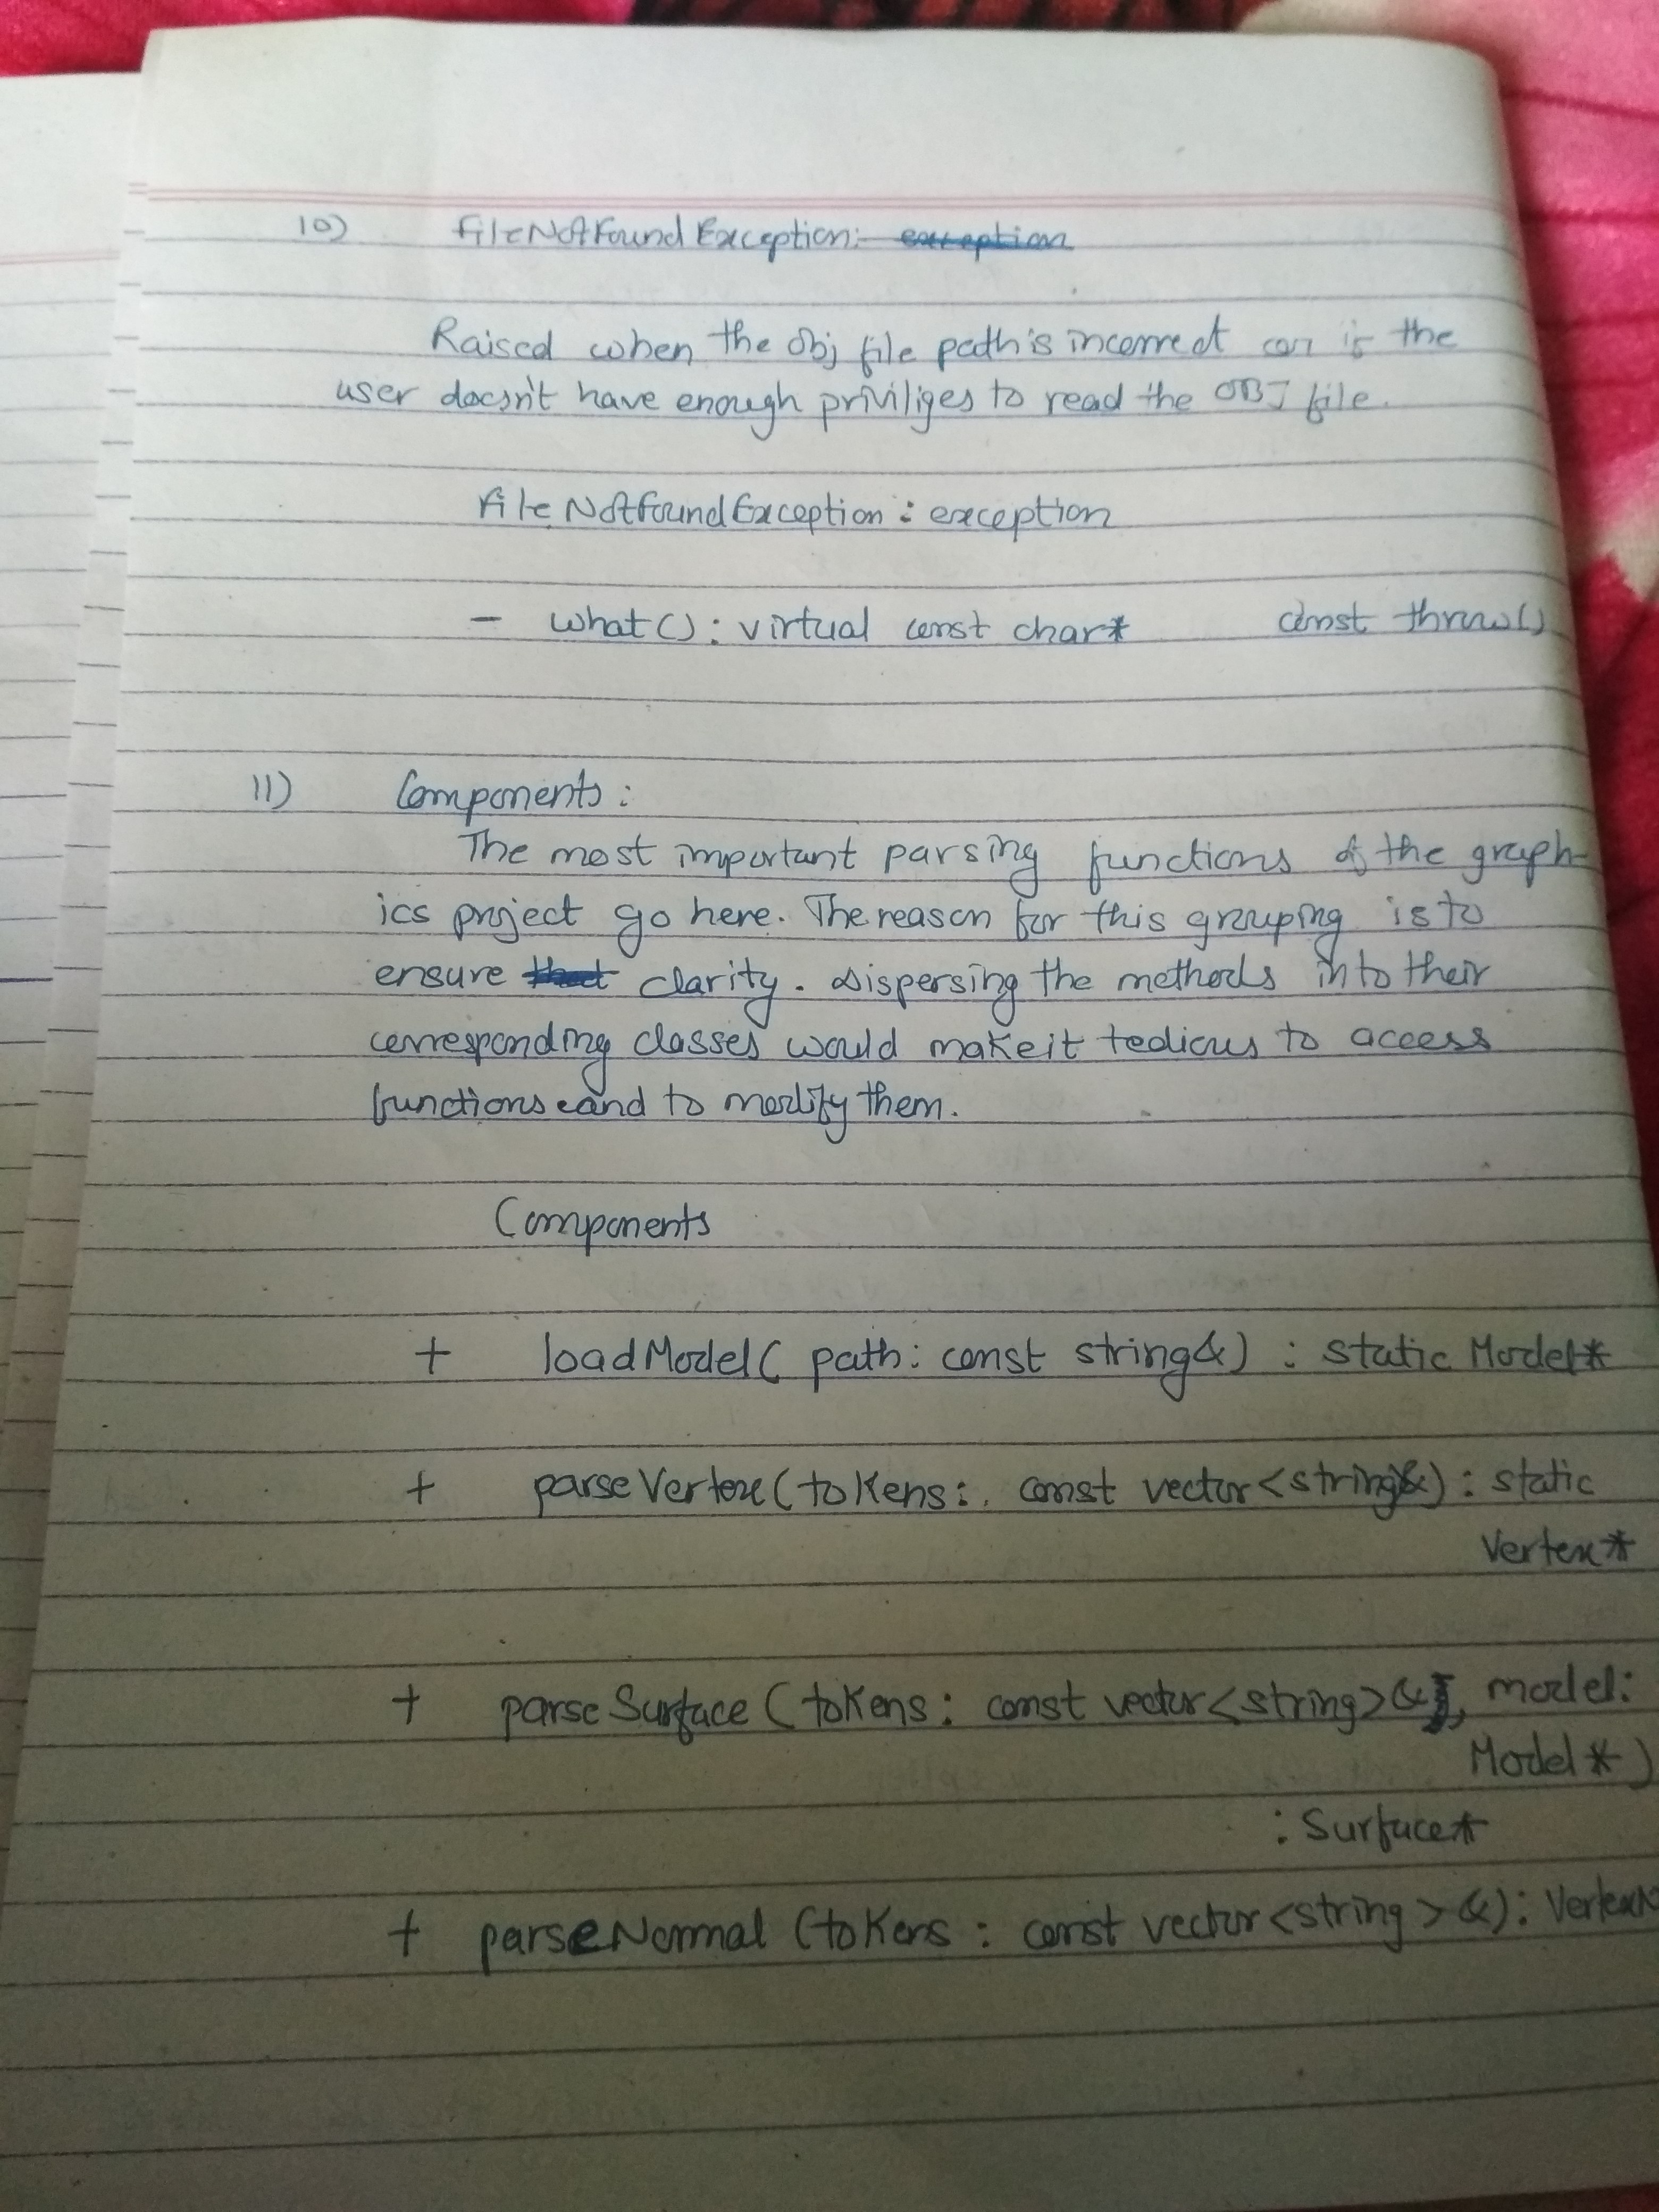 10) FileNotFoundException: exception
Raised when the Obj file path is incorrect or is the
user doesn't have enough priviliges to read the OBJ file.
FileNotFoundException : exception
- what() : virtual const char* const throw()
11) Components :
The most important parsing functions of the graph-
ics project go here. The reason for this grouping is to
ensure that clarity. Dispersing the methods into their
corresponding classes would make it tedious to access
functions and to modify them.
Components
+ loadModel( path: const string&) : static Model*
+ parseVertex(tokens: const vector<string>&) : static
Vertex*
+ parseSurface (tokens: const vector<string>&, model:
Model*)
: Surface*
+ parseNormal (tokens : const vector<string>&): Vertex*